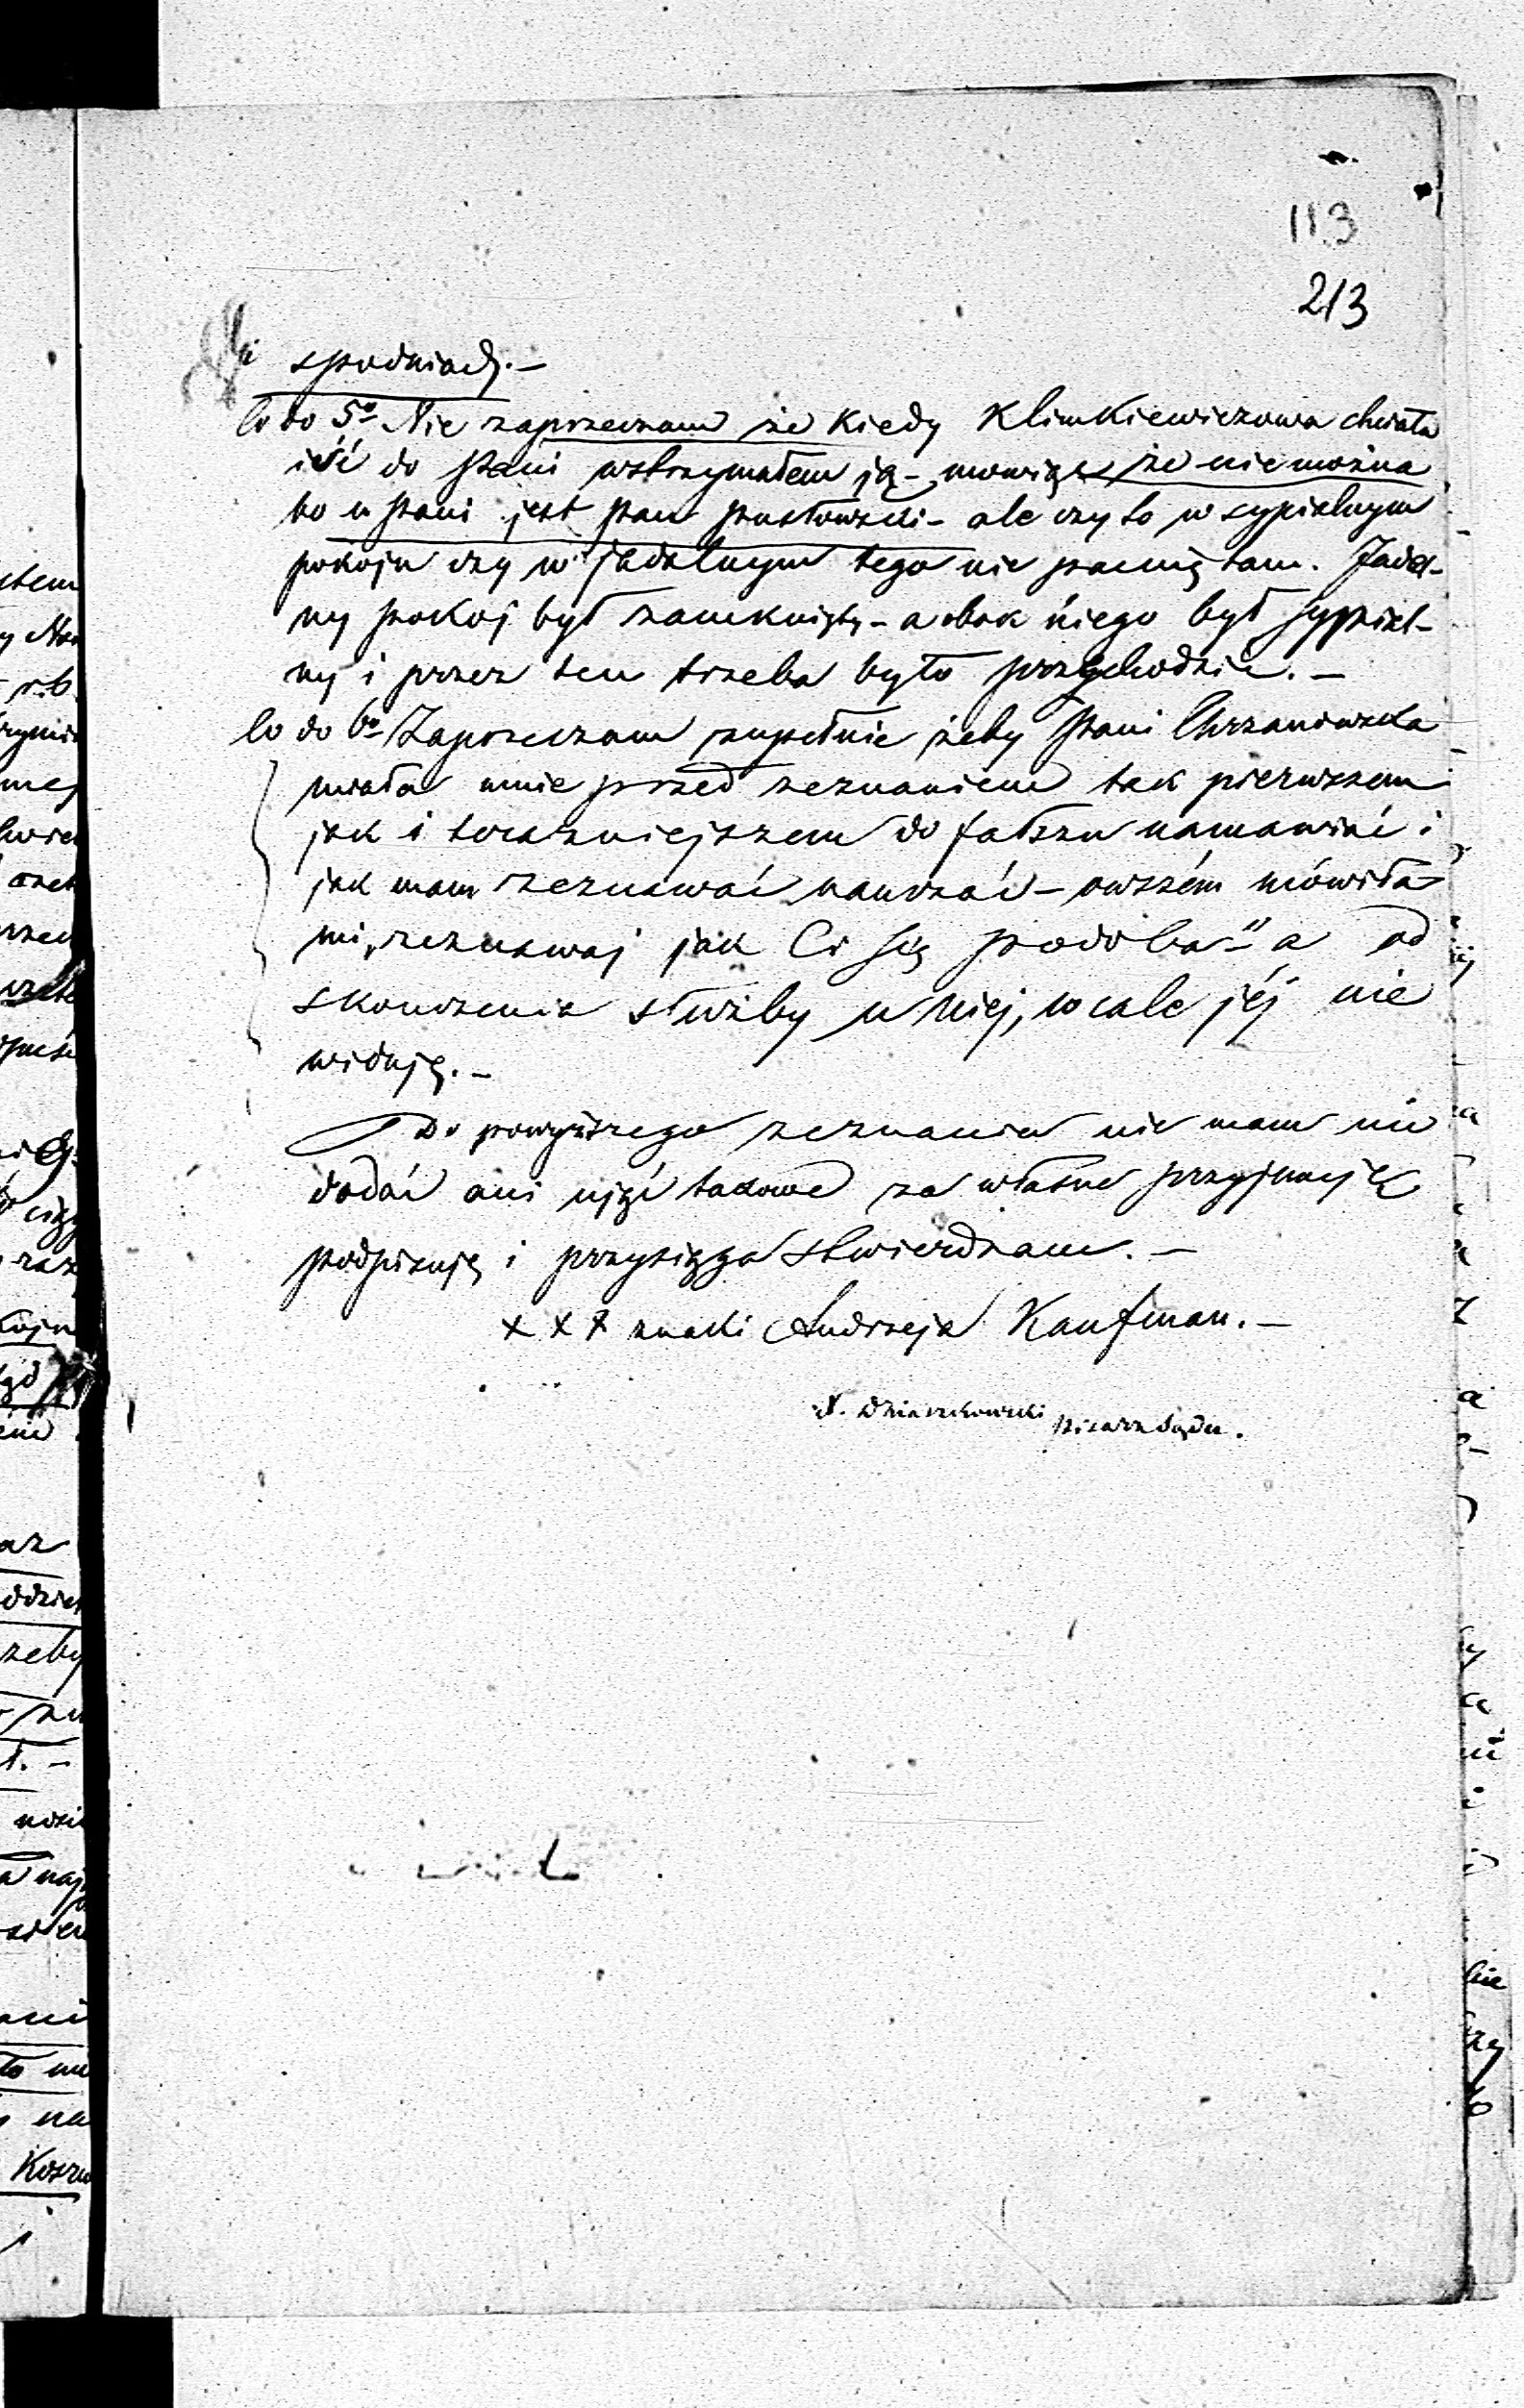 113
213
i spodniach.—
Co do 5º Nie zaprzeczam że kiedy Klimkiewiczowa chciała
iść do Pani wstrzymałem ją - mowiąc że nie można
bo u Pani jest Pan Pusłowski - ale czy to w sypialnym
pokoju czy w jadalnym tego nie pamiętam. Jadal-
ny pokoj był zamknięty - a obok niego był sypial-
ny i przez ten trzeba było przychodzić. —
Co do 6º Zaprzeczam zupełnie żeby Pani Chrzanowska
miała mnie przed zeznaniem tak pierwszem
jak i teraźniejszem do fałszu namawiać i
jak mam zeznawać nauczać - owszém mówiła
mi „zeznawaj jak Ci się podoba" - a od
skończenia służby u niej, wcale jéj nie
widuję. —
Do powyższego zeznania nie mam nic
dodać ani ująć takowe za własne przyjmuję
podpisuję i przysięgą stwierdzam. —
x x x znaki Andrzeja Kaufman. —
Pisarz Sądu.